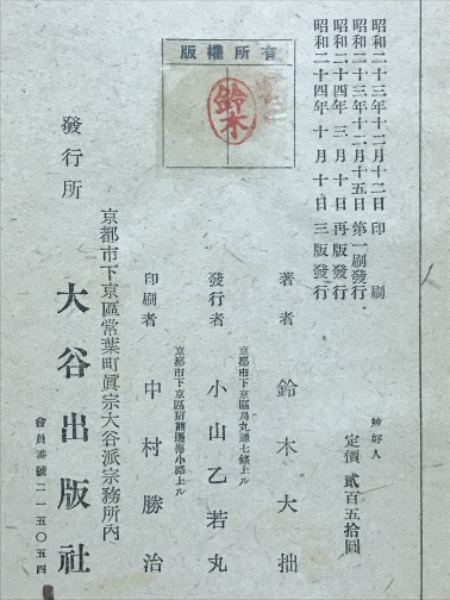 妙好人
定價 貳百五拾圓
昭和二十三年十二月十二日 印刷
昭和二十三年十二月十五日 第一刷發行
昭和二十四年 三月 十日 再版發行
昭和二十四年 十月 十日 三版發行
有所權版
鈴木
著者 鈴木大拙
京都市下京區烏丸通七條上ル
發行者 小山乙若丸
京都市下京區猪熊
小路上ル
印刷者 中村勝治
京都市下京區常葉町眞宗大谷派宗務所内
發行所 大谷出版社
會員番號二一五〇五四